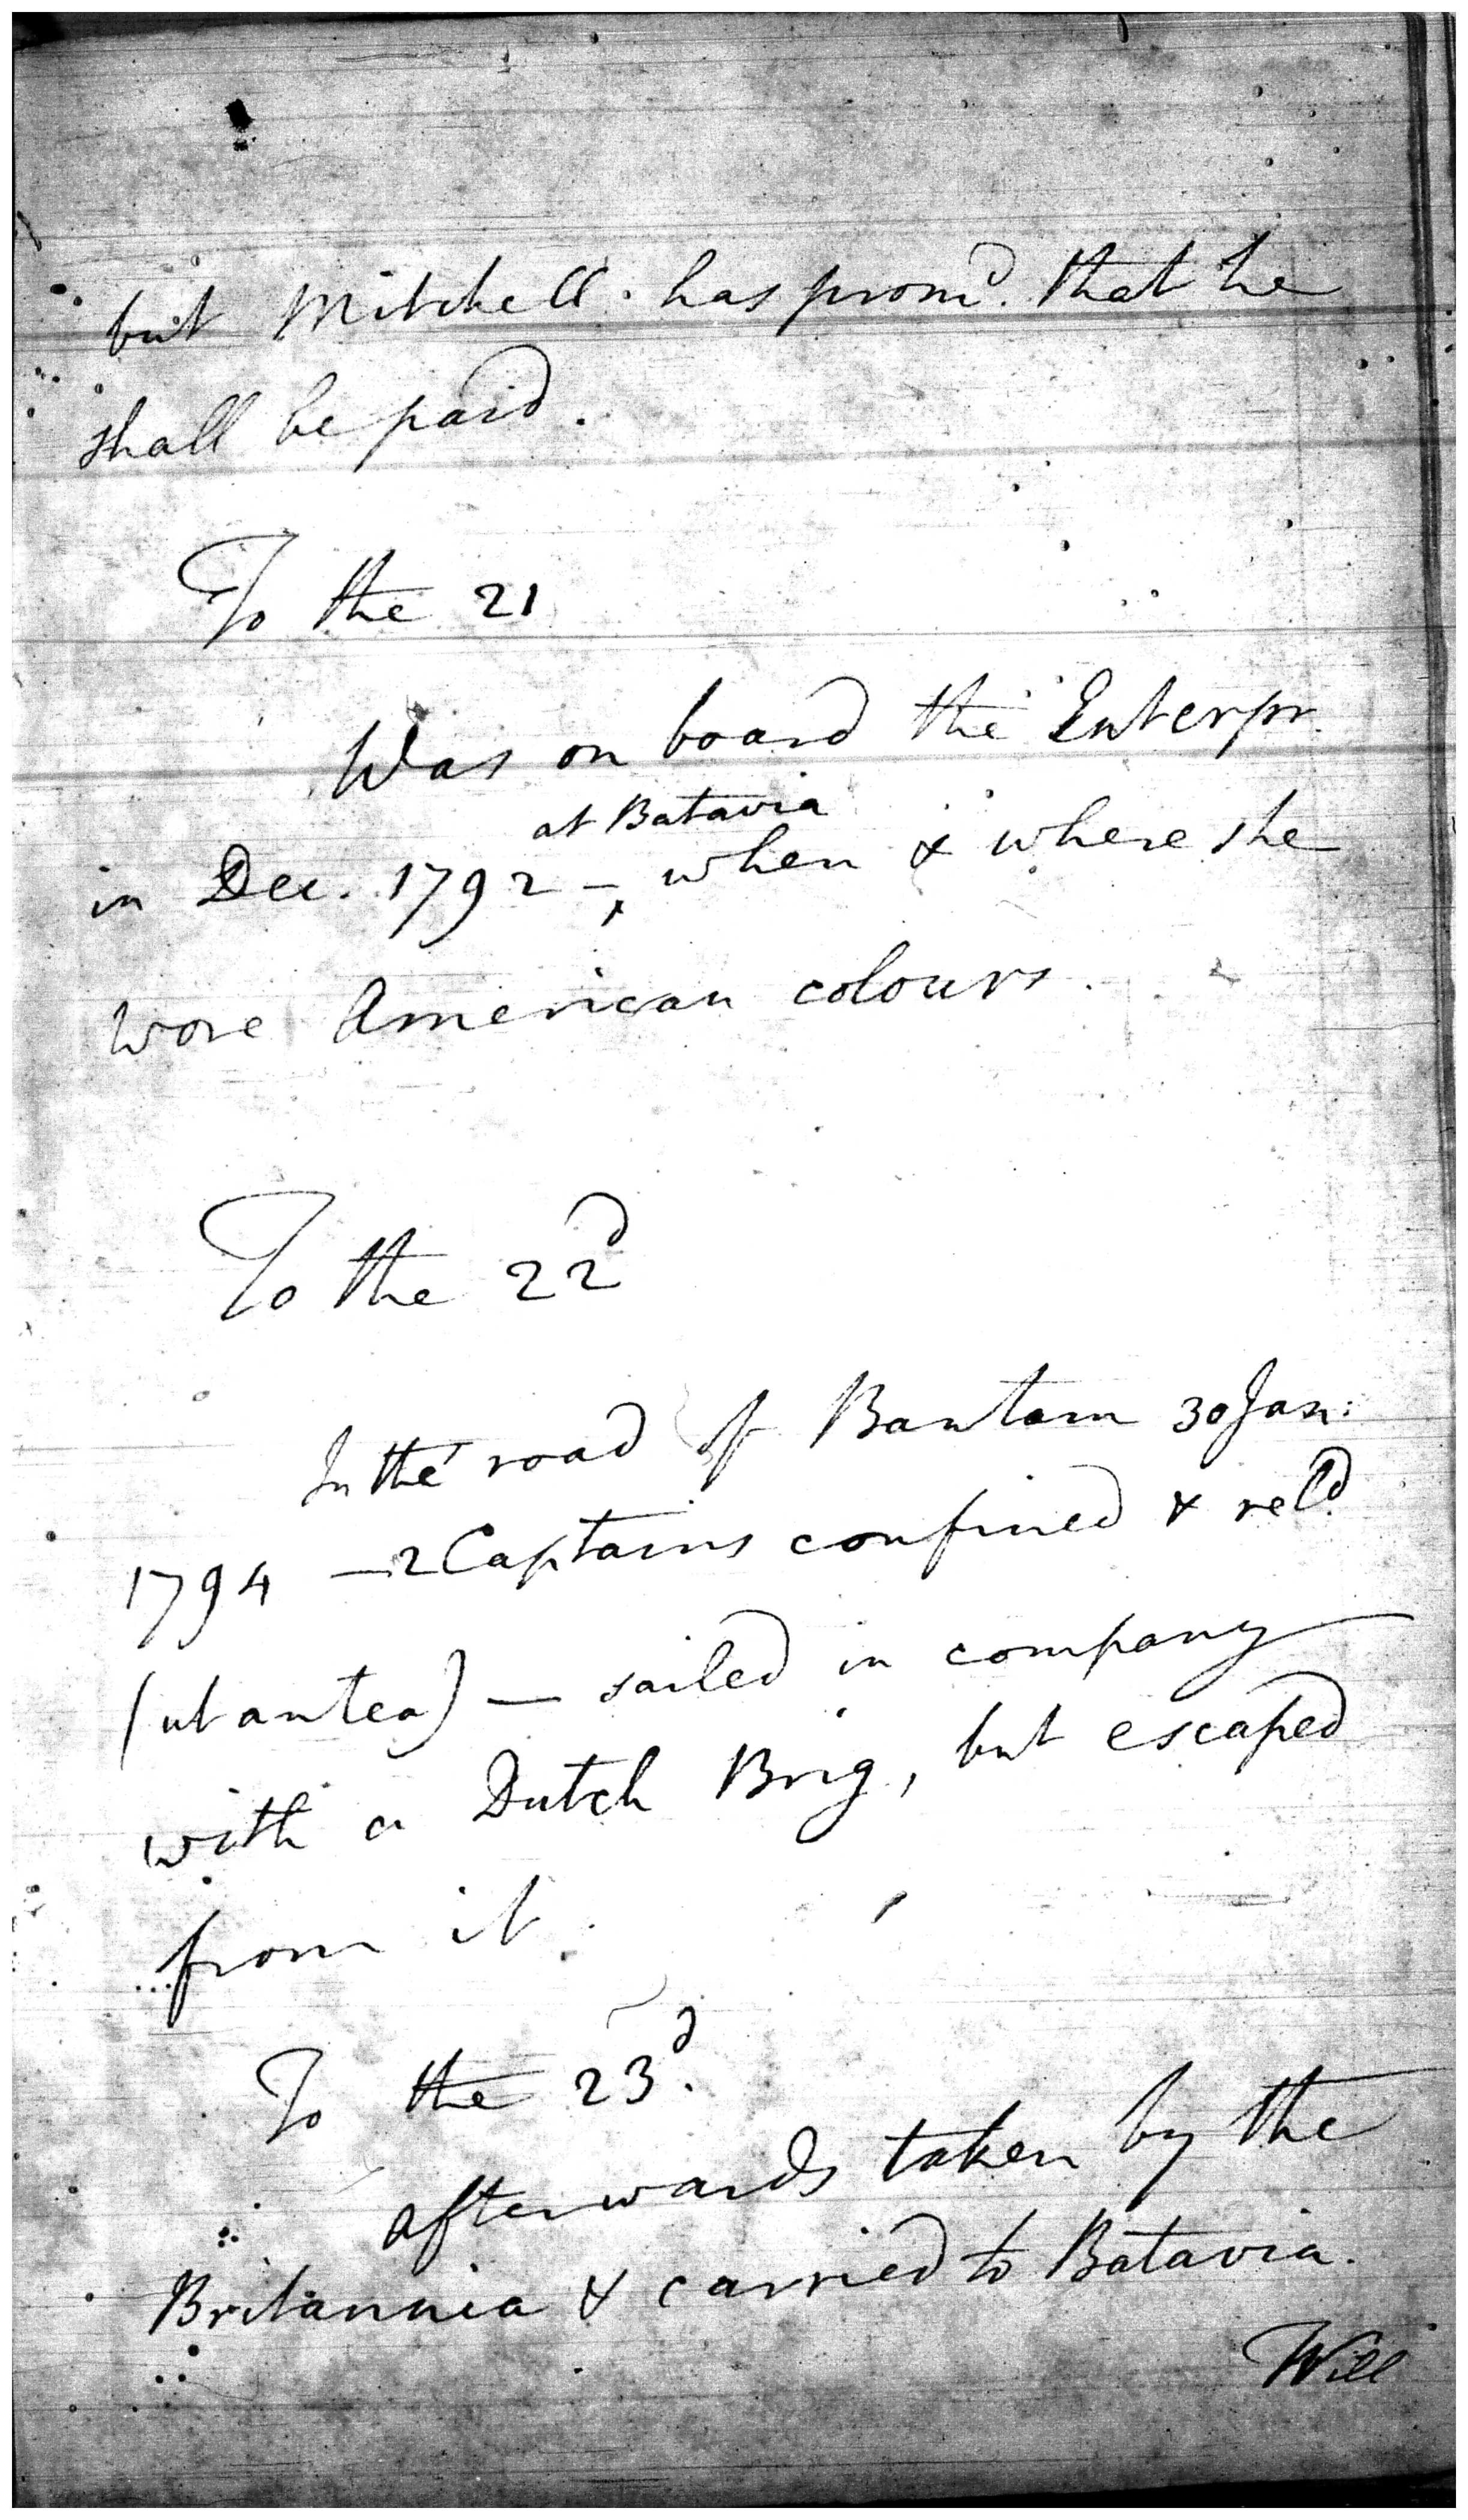 but Mitchell has prom^d. that he
shall be paid.
To the 21
Was on board the Enterpr.
at Batavia
in Dec. 1792 -, when & where she
wore American colours.
To the 22^d
In the road of Bantam 30 Jan:
1794 — 2 Captains confined & rel^d.
(ut antea) — sailed in company
with a Dutch Brig, but escaped
from it.
To the 23^d.
afterwards taken by the
Britannia & carried to Batavia.
Will